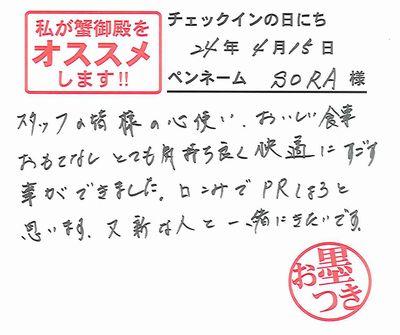 私が蟹御殿を
オススメ
します!!
チェックインの日にち
24年4月15日
ペンネーム SORA 様
スタッフの皆様の心使い、おいしい食事
おもてなし とても気持ち良く快適にすごす
事ができました。口コミでPRしようと
思います。又新な人と一緒にきたいです。
お墨つき